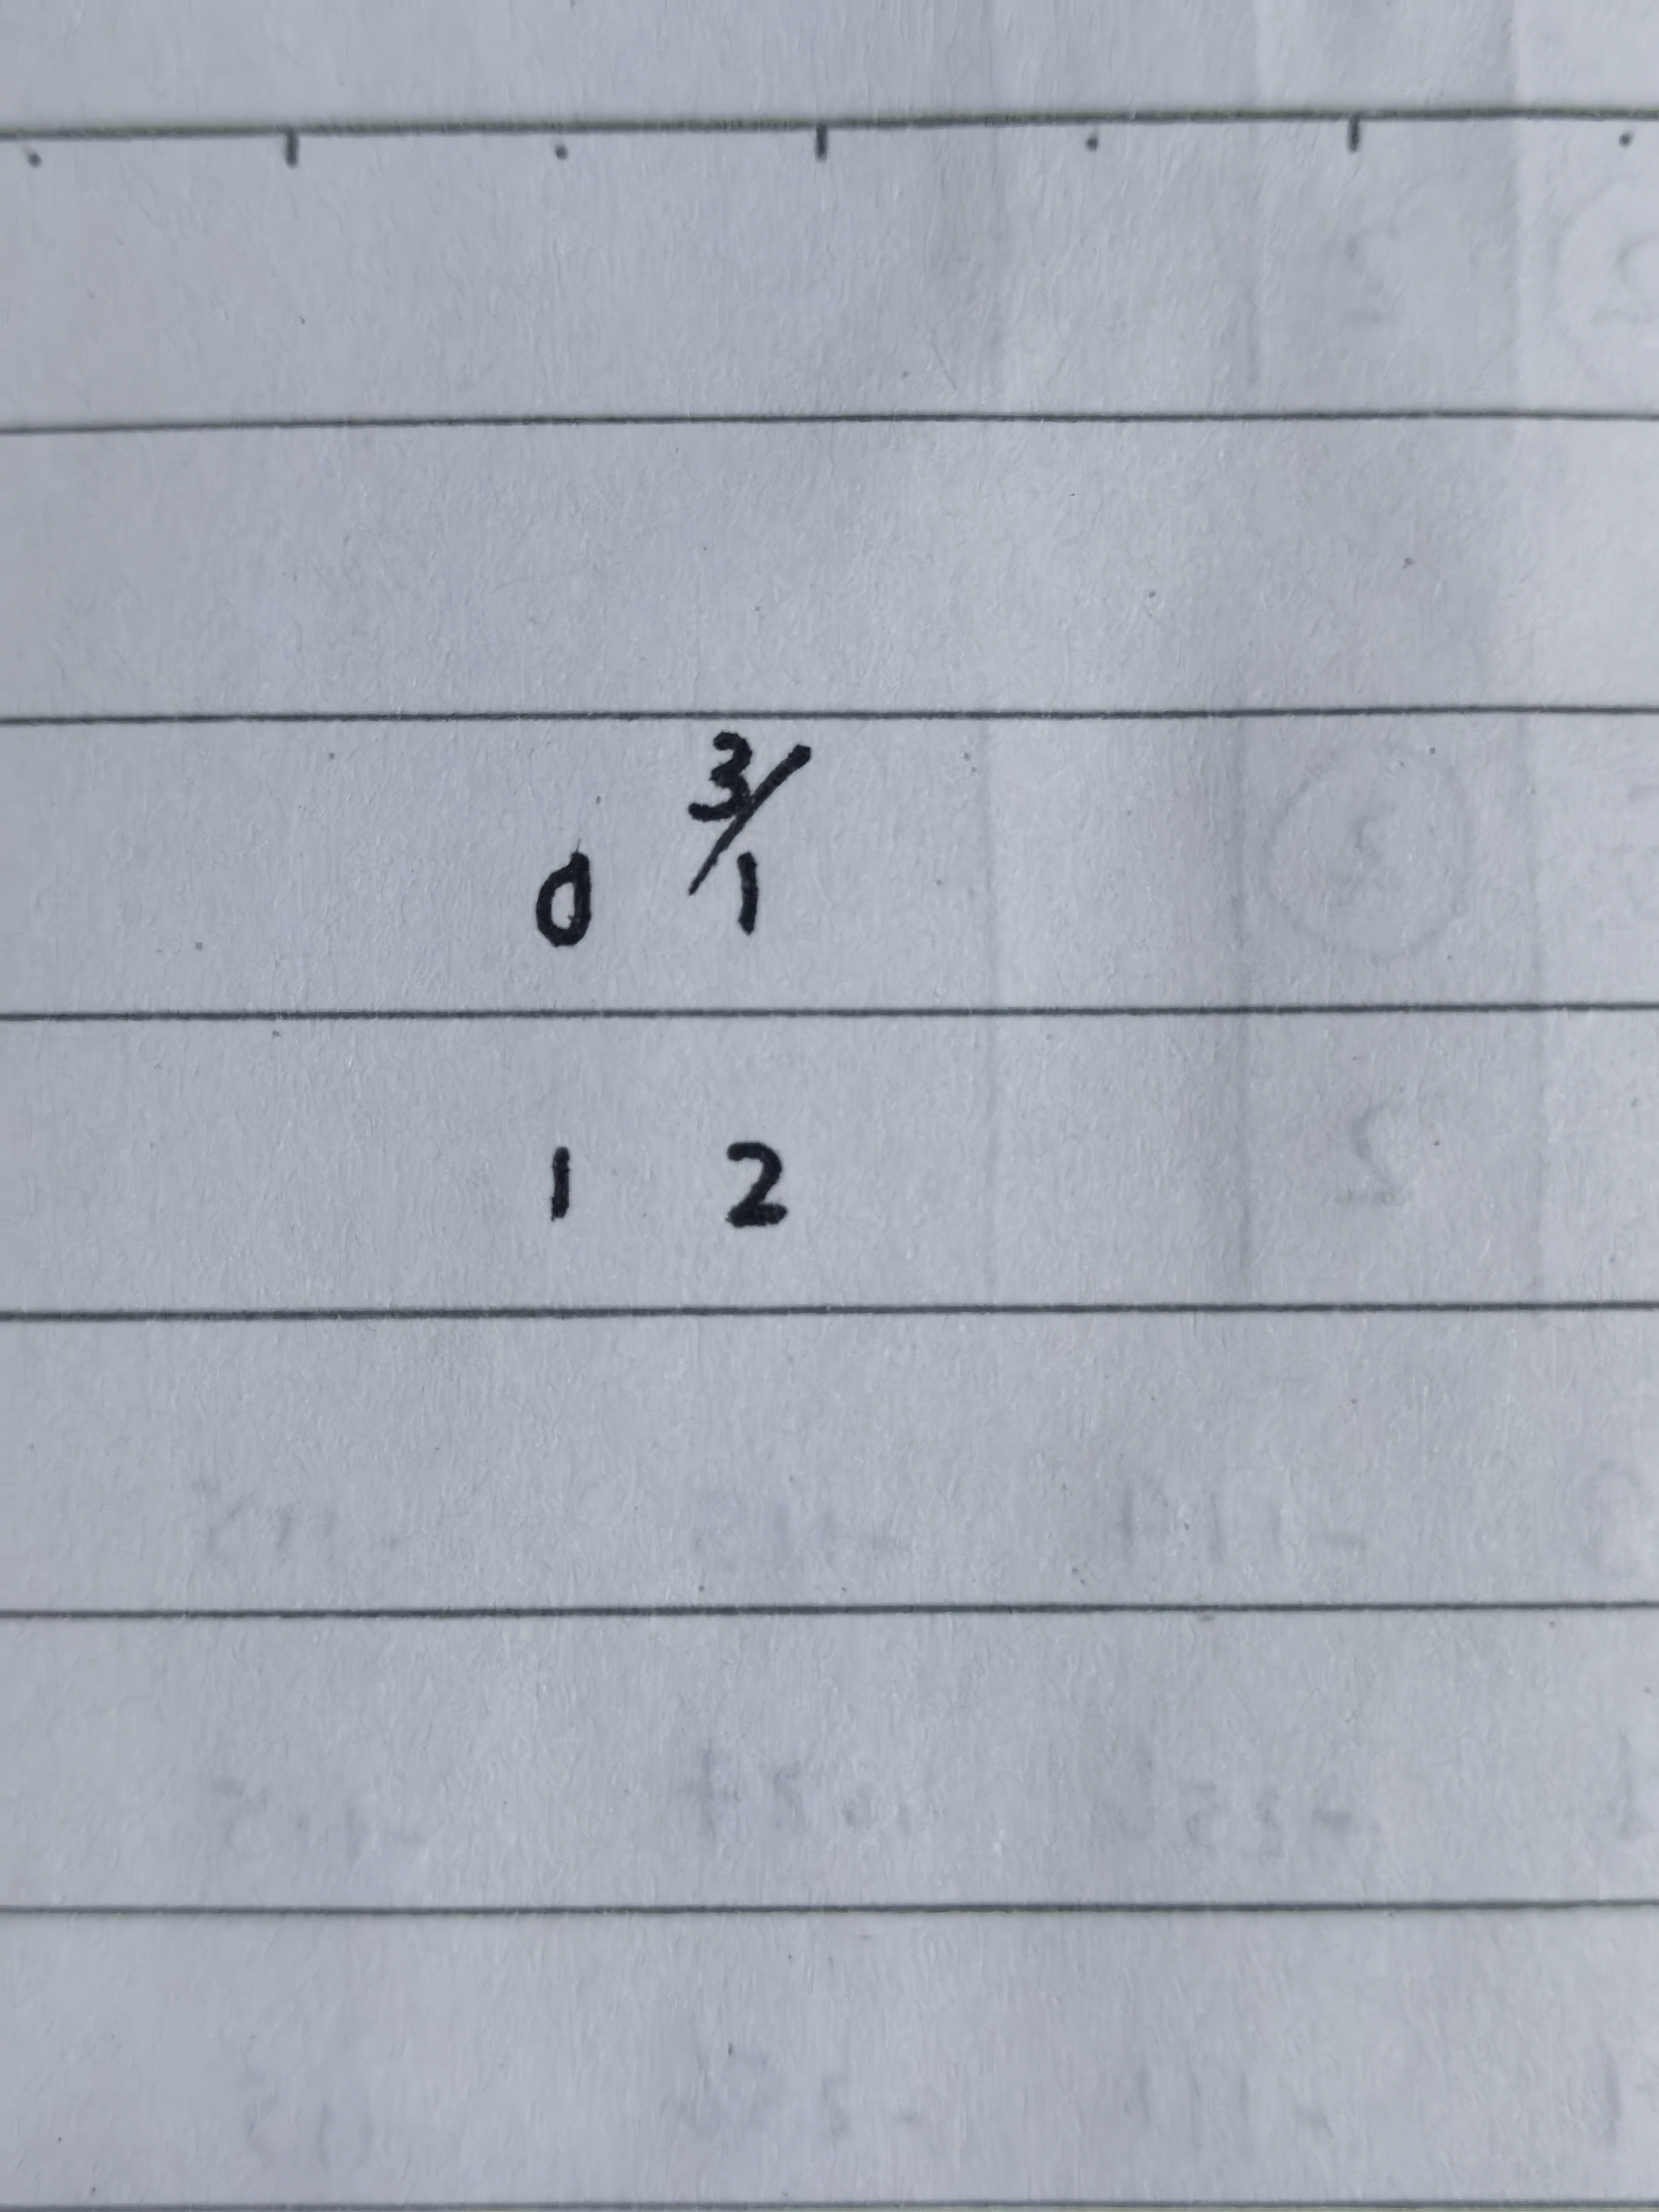 0 3/1
1 2